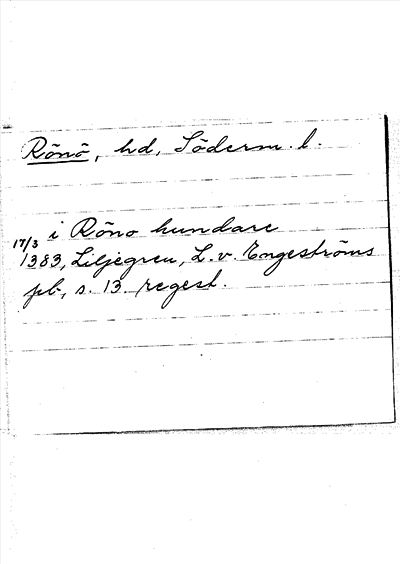 Rönö, hd, Söderm. l.
i Röno hundare
17/3
1383, Liljegren, L. v. Engeströms
pb, s. 13 regest.